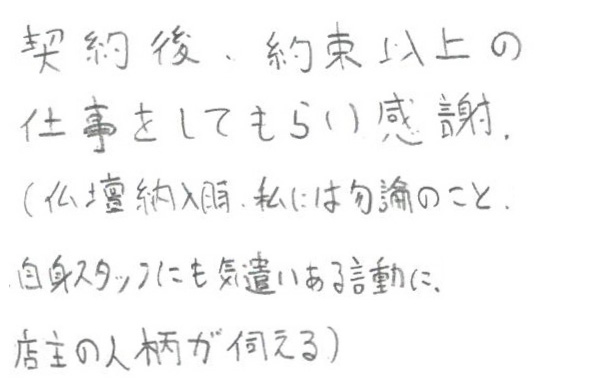 契約後、約束以上の
仕事をしてもらい感謝.
(仏壇納入時、私には勿論のこと、
自身スタッフにも気遣いある言動に、
店主の人柄が伺える)